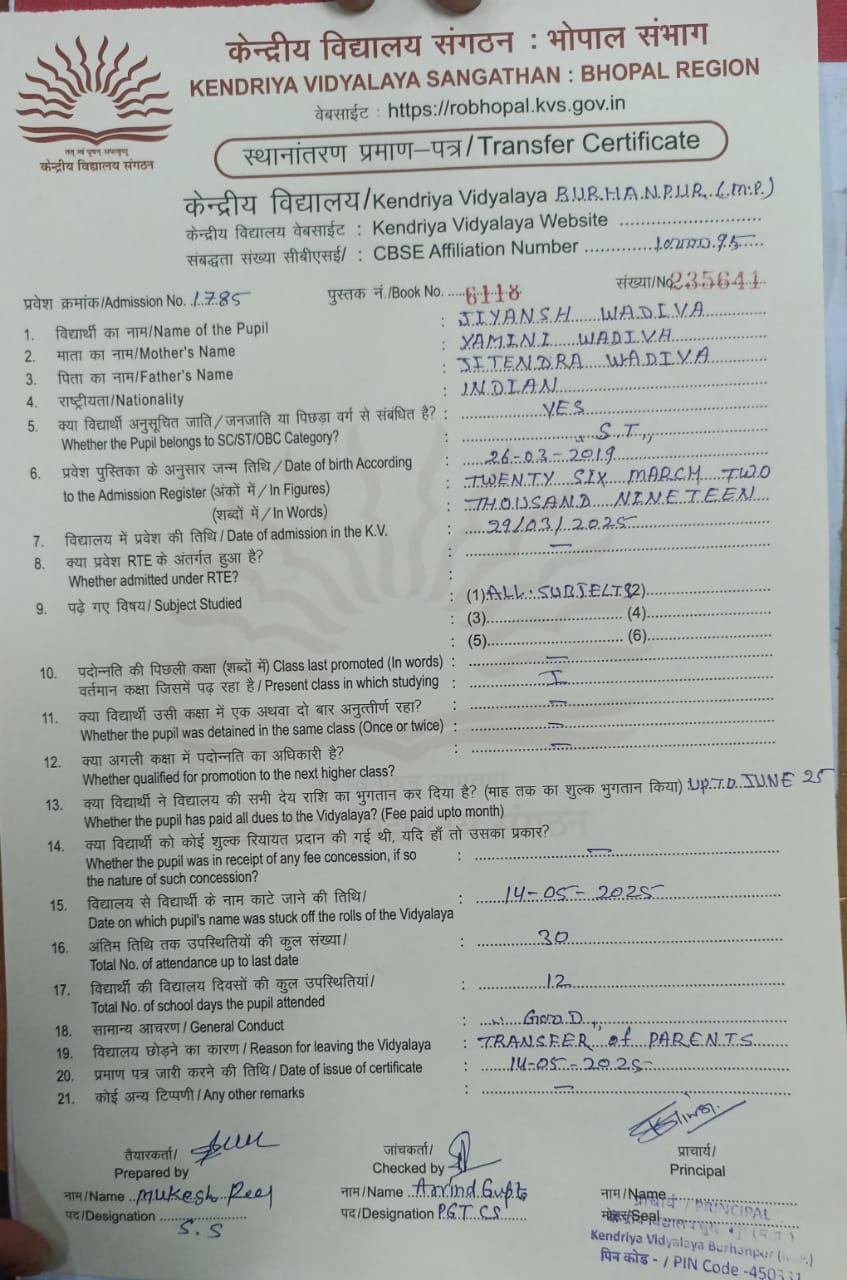 केन्द्रीय विद्यालय संगठन : भोपाल संभाग
KENDRIYA VIDYALAYA SANGATHAN : BHOPAL REGION
वेबसाईट : https://robhopal.kvs.gov.in
तत् त्वं पूषन् अपावृणु
केन्द्रीय विद्यालय संगठन
स्थानांतरण प्रमाण–पत्र/Transfer Certificate
केन्द्रीय विद्यालय/Kendriya Vidyalaya BURHANPUR (M.P.)
केन्द्रीय विद्यालय वेबसाईट : Kendriya Vidyalaya Website
संबद्धता संख्या सीबीएसई/ : CBSE Affiliation Number
प्रवेश क्रमांक/Admission No. 1785 पुस्तक नं./Book No. 6118 संख्या/No. 235641
1. विद्यार्थी का नाम/Name of the Pupil : JIYANSH WADIVA
2. माता का नाम/Mother's Name : YAMINI WADIVA
3. पिता का नाम/Father's Name : JITENDRA WADIVA
4. राष्ट्रीयता/Nationality : INDIAN
5. क्या विद्यार्थी अनुसूचित जाति/जनजाति या पिछड़ा वर्ग से संबंधित है? : YES
Whether the Pupil belongs to SC/ST/OBC Category? : S.T.
6. प्रवेश पुस्तिका के अनुसार जन्म तिथि/Date of birth According : 26-03-2019
to the Admission Register (अंकों में/In Figures) : TWENTY SIX MARCH TWO
(शब्दों में/In Words) : THOUSAND NINETEEN
7. विद्यालय में प्रवेश की तिथि/Date of admission in the K.V. : 29/03/2025
8. क्या प्रवेश RTE के अंतर्गत हुआ है? : —
Whether admitted under RTE? :
9. पढ़े गए विषय/Subject Studied : (1) ALL SUBJECTS (2)
: (3) (4)
: (5) (6)
10. पदोन्नति की पिछली कक्षा (शब्दों में) Class last promoted (In words) : —
वर्तमान कक्षा जिसमें पढ़ रहा है/Present class in which studying : I
11. क्या विद्यार्थी उसी कक्षा में एक अथवा दो बार अनुत्तीर्ण रहा? : —
Whether the pupil was detained in the same class (Once or twice) : —
12. क्या अगली कक्षा में पदोन्नति का अधिकारी है? : —
Whether qualified for promotion to the next higher class?
13. क्या विद्यार्थी ने विद्यालय की सभी देय राशि का भुगतान कर दिया है? (माह तक का शुल्क भुगतान किया) UPTO JUNE 25
Whether the pupil has paid all dues to the Vidyalaya? (Fee paid upto month)
14. क्या विद्यार्थी को कोई शुल्क रियायत प्रदान की गई थी, यदि हाँ तो उसका प्रकार?
Whether the pupil was in receipt of any fee concession, if so : —
the nature of such concession?
15. विद्यालय से विद्यार्थी के नाम काटे जाने की तिथि/ : 14-05-2025
Date on which pupil's name was stuck off the rolls of the Vidyalaya
16. अंतिम तिथि तक उपस्थितियों की कुल संख्या/ : 30
Total No. of attendance up to last date
17. विद्यार्थी की विद्यालय दिवसों की कुल उपस्थितियां/ : 12
Total No. of school days the pupil attended
18. सामान्य आचरण/General Conduct : GOOD
19. विद्यालय छोड़ने का कारण/Reason for leaving the Vidyalaya : TRANSFER of PARENTS
20. प्रमाण पत्र जारी करने की तिथि/Date of issue of certificate : 14-05-2025
21. कोई अन्य टिप्पणी/Any other remarks : —
तैयारकर्ता/ जांचकर्ता/ प्राचार्य/
Prepared by Checked by Principal
नाम/Name Mukesh नाम/Name Arvind Gupta नाम/Name
पद/Designation S.S पद/Designation P.G.T CS मोहर/Seal
प्राचार्य / PRINCIPAL
Kendriya Vidyalaya Burhanpur
पिन कोड - / PIN Code -450331